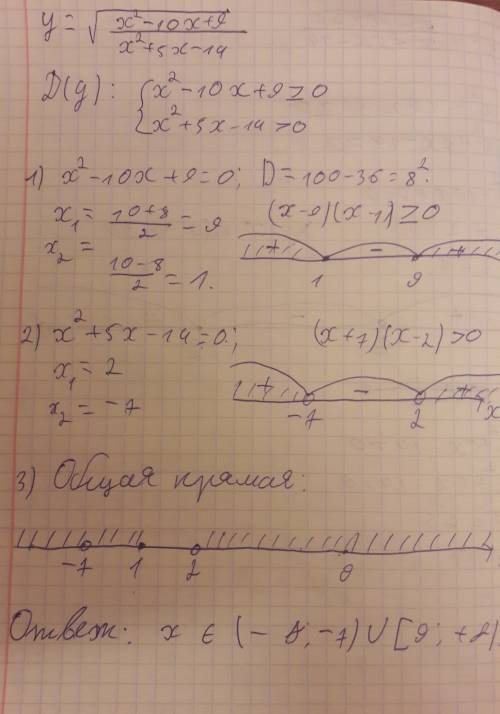 y = √(x²-10x+9 / x²+5x-14)
D(y): { x²-10x+9≥0
x²+5x-14>0
1) x²-10x+9=0; D=100-36=8².
x₁ = (10+8)/2 = 9 (x-9)(x-1)≥0
x₂ = (10-8)/2 = 1.
+ - +
1 9
2) x²+5x-14=0; (x+7)(x-2)>0
x₁ = 2
x₂ = -7
+ - +
-7 2 x
3) Общая прямая:
-7 1 2 9
Ответ: x ∈ (-∞; -7) ∪ [9; +∞).